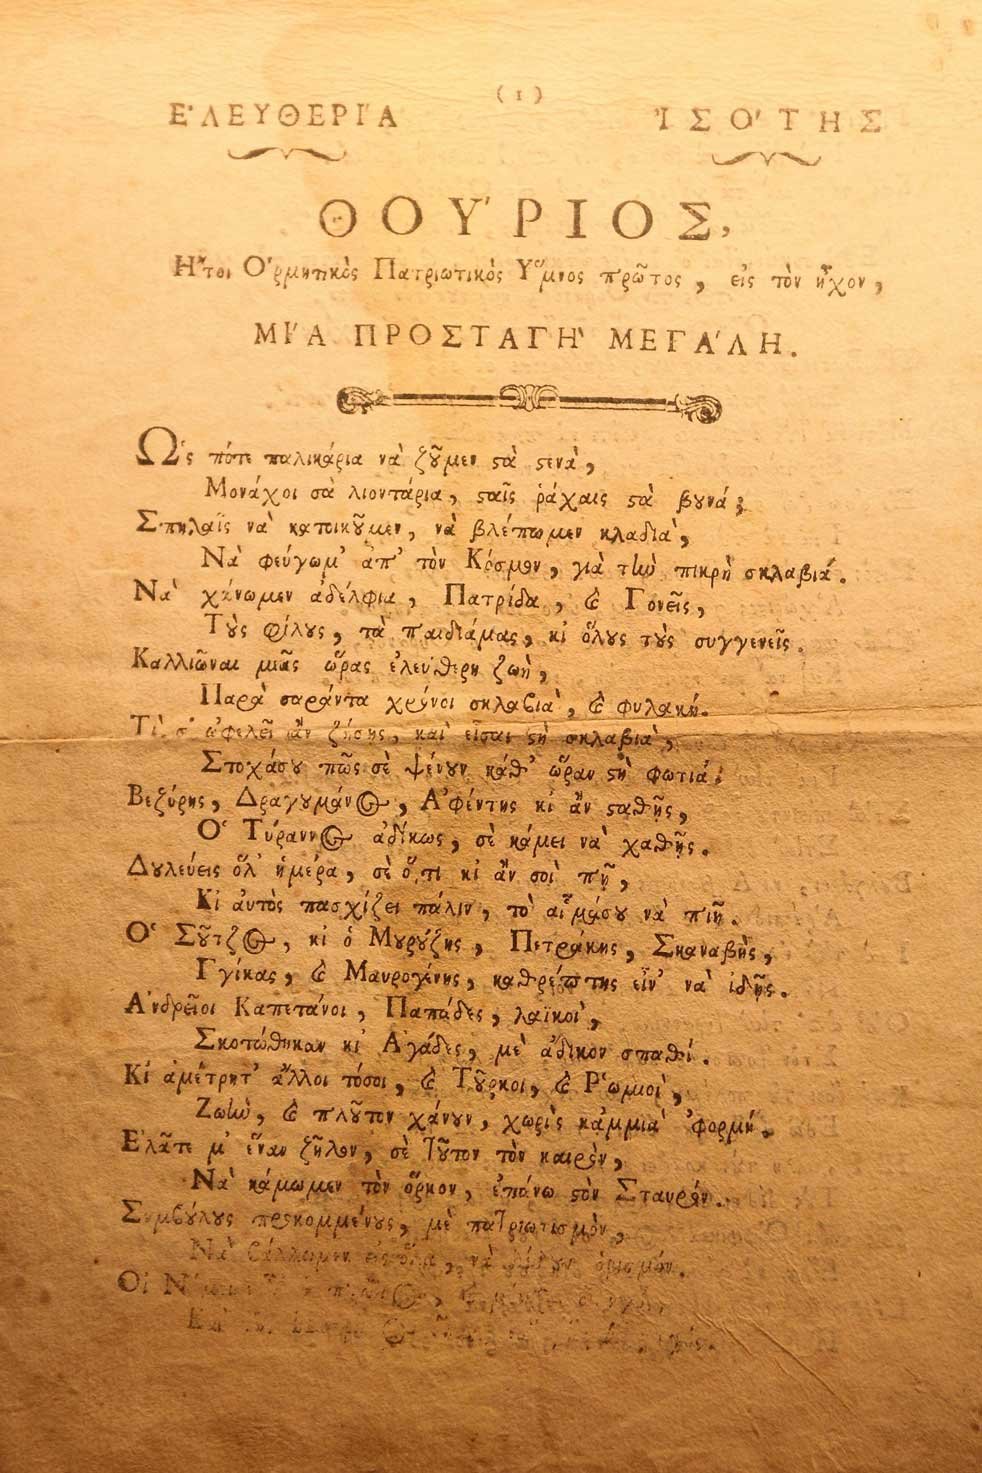 ( 1 )
Ε᾿ΛΕΥΘΕΡΙ´Α ᾿ΙΣΟ´ΤΗΣ
ΘΟΥ´ΡΙΟΣ,
Η῎τοι Ο῾ρμητικὸς Πατριωτικὸς Υ῞μνος πρῶτος, εἰς τὸν ἦχον,
ΜΙ´Α ΠΡΟΣΤΑΓΗ` ΜΕΓΑ´ΛΗ.
Ω῾ς πότε παλικάρια νὰ ζȣ͂μεν ϛὰ ϛενὰ,
Μονάχοι σὰ λιοντάρια, ϛαῖς ῥάχαις ϛὰ βȣνά;
Σπηλαῖς νὰ κατοικȣ͂μεν, νὰ βλέπωμεν κλαδιὰ,
Νὰ φεύγωμ᾿ ἀπ᾿ τὸν Κόσμον, γιὰ τὴν πικρὴ σκλαβιά.
Νὰ χάνωμεν ἀδέλφια, Πατρίδα, ϗ Γονεῖς,
Τȣ̀ς φίλȣς, τὰ παιδιάμας, κι ὅλȣς τȣ̀ς συγγενεῖς.
Καλλιῶναι μιᾶς ὥρας ἐλεύθερη ζωὴ,
Παρὰ σαράντα χρόνοι σκλαβιὰ, ϗ φυλακή.
Τὶ σ᾿ ὠφελεῖ ἂν ζήσης, καὶ εἶσαι ϛὴ σκλαβιὰ,
Στοχάσȣ πῶς σὲ ψένȣν κάθ᾿ ὥραν ϛὴ φωτιά;
Βεζύρης, Δραγȣμάνος, Α᾿φέντης κι ἂν ϛαθῇς,
Ο῾ Τύραννος ἀδίκως, σὲ κάμει νὰ χαθῇς.
Δȣλεύεις ὅλ᾿ ἡμέρα, σὲ ὅ,τι κι ἂν σοὶ πῇ,
Κι αὐτὸς πασχίζει πάλιν, τὸ αἷμάσȣ νὰ πιῇ.
Ο῾ Σȣ͂τζος, κι ὁ Μȣρȣ́ζης, Πετράκης, Σκαναβὴς,
Γγίκας, ϗ Μαυρογένης, καθρέπτης εἶν᾿ νὰ ἰδῇς.
Α᾿νδρεῖοι Καπετάνοι, Παπάδες, λαϊκοὶ,
Σκοτώθηκαν κι Α᾿γάδες, μὲ ἄδικον σπαθί.
Κι ἀμέτρητ᾿ ἄλλοι τόσοι, ϗ Τȣ͂ρκοι, ϗ Ρ῾ωμιοὶ,
Ζωὴν, ϗ πλȣ͂τον χάνȣν, χωρὶς κἀμμιὰ ᾿φορμή.
Ε᾿λᾶτε μ᾿ ἕναν ζῆλον, σὲ τȣ͂τον τὸν καιρὸν,
Νὰ κάμωμεν τὸν ὅρκον, ἐπάνω ϛὸν Σταυρόν.
Συμβȣ́λȣς προκομμένȣς, μὲ πατριωτισμὸν,
Νὰ βάλλωμεν εἰς ὅλα, νὰ δίδȣν ὁρισμόν.
Οἱ